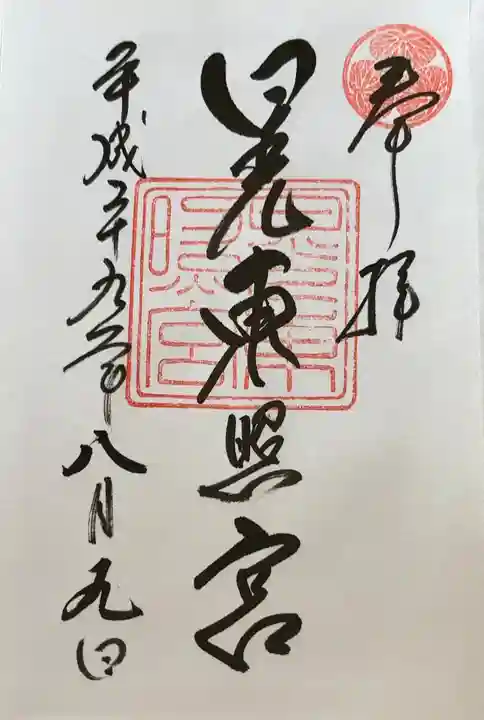 奉拝
日光東照宮
平成二十九年八月九日